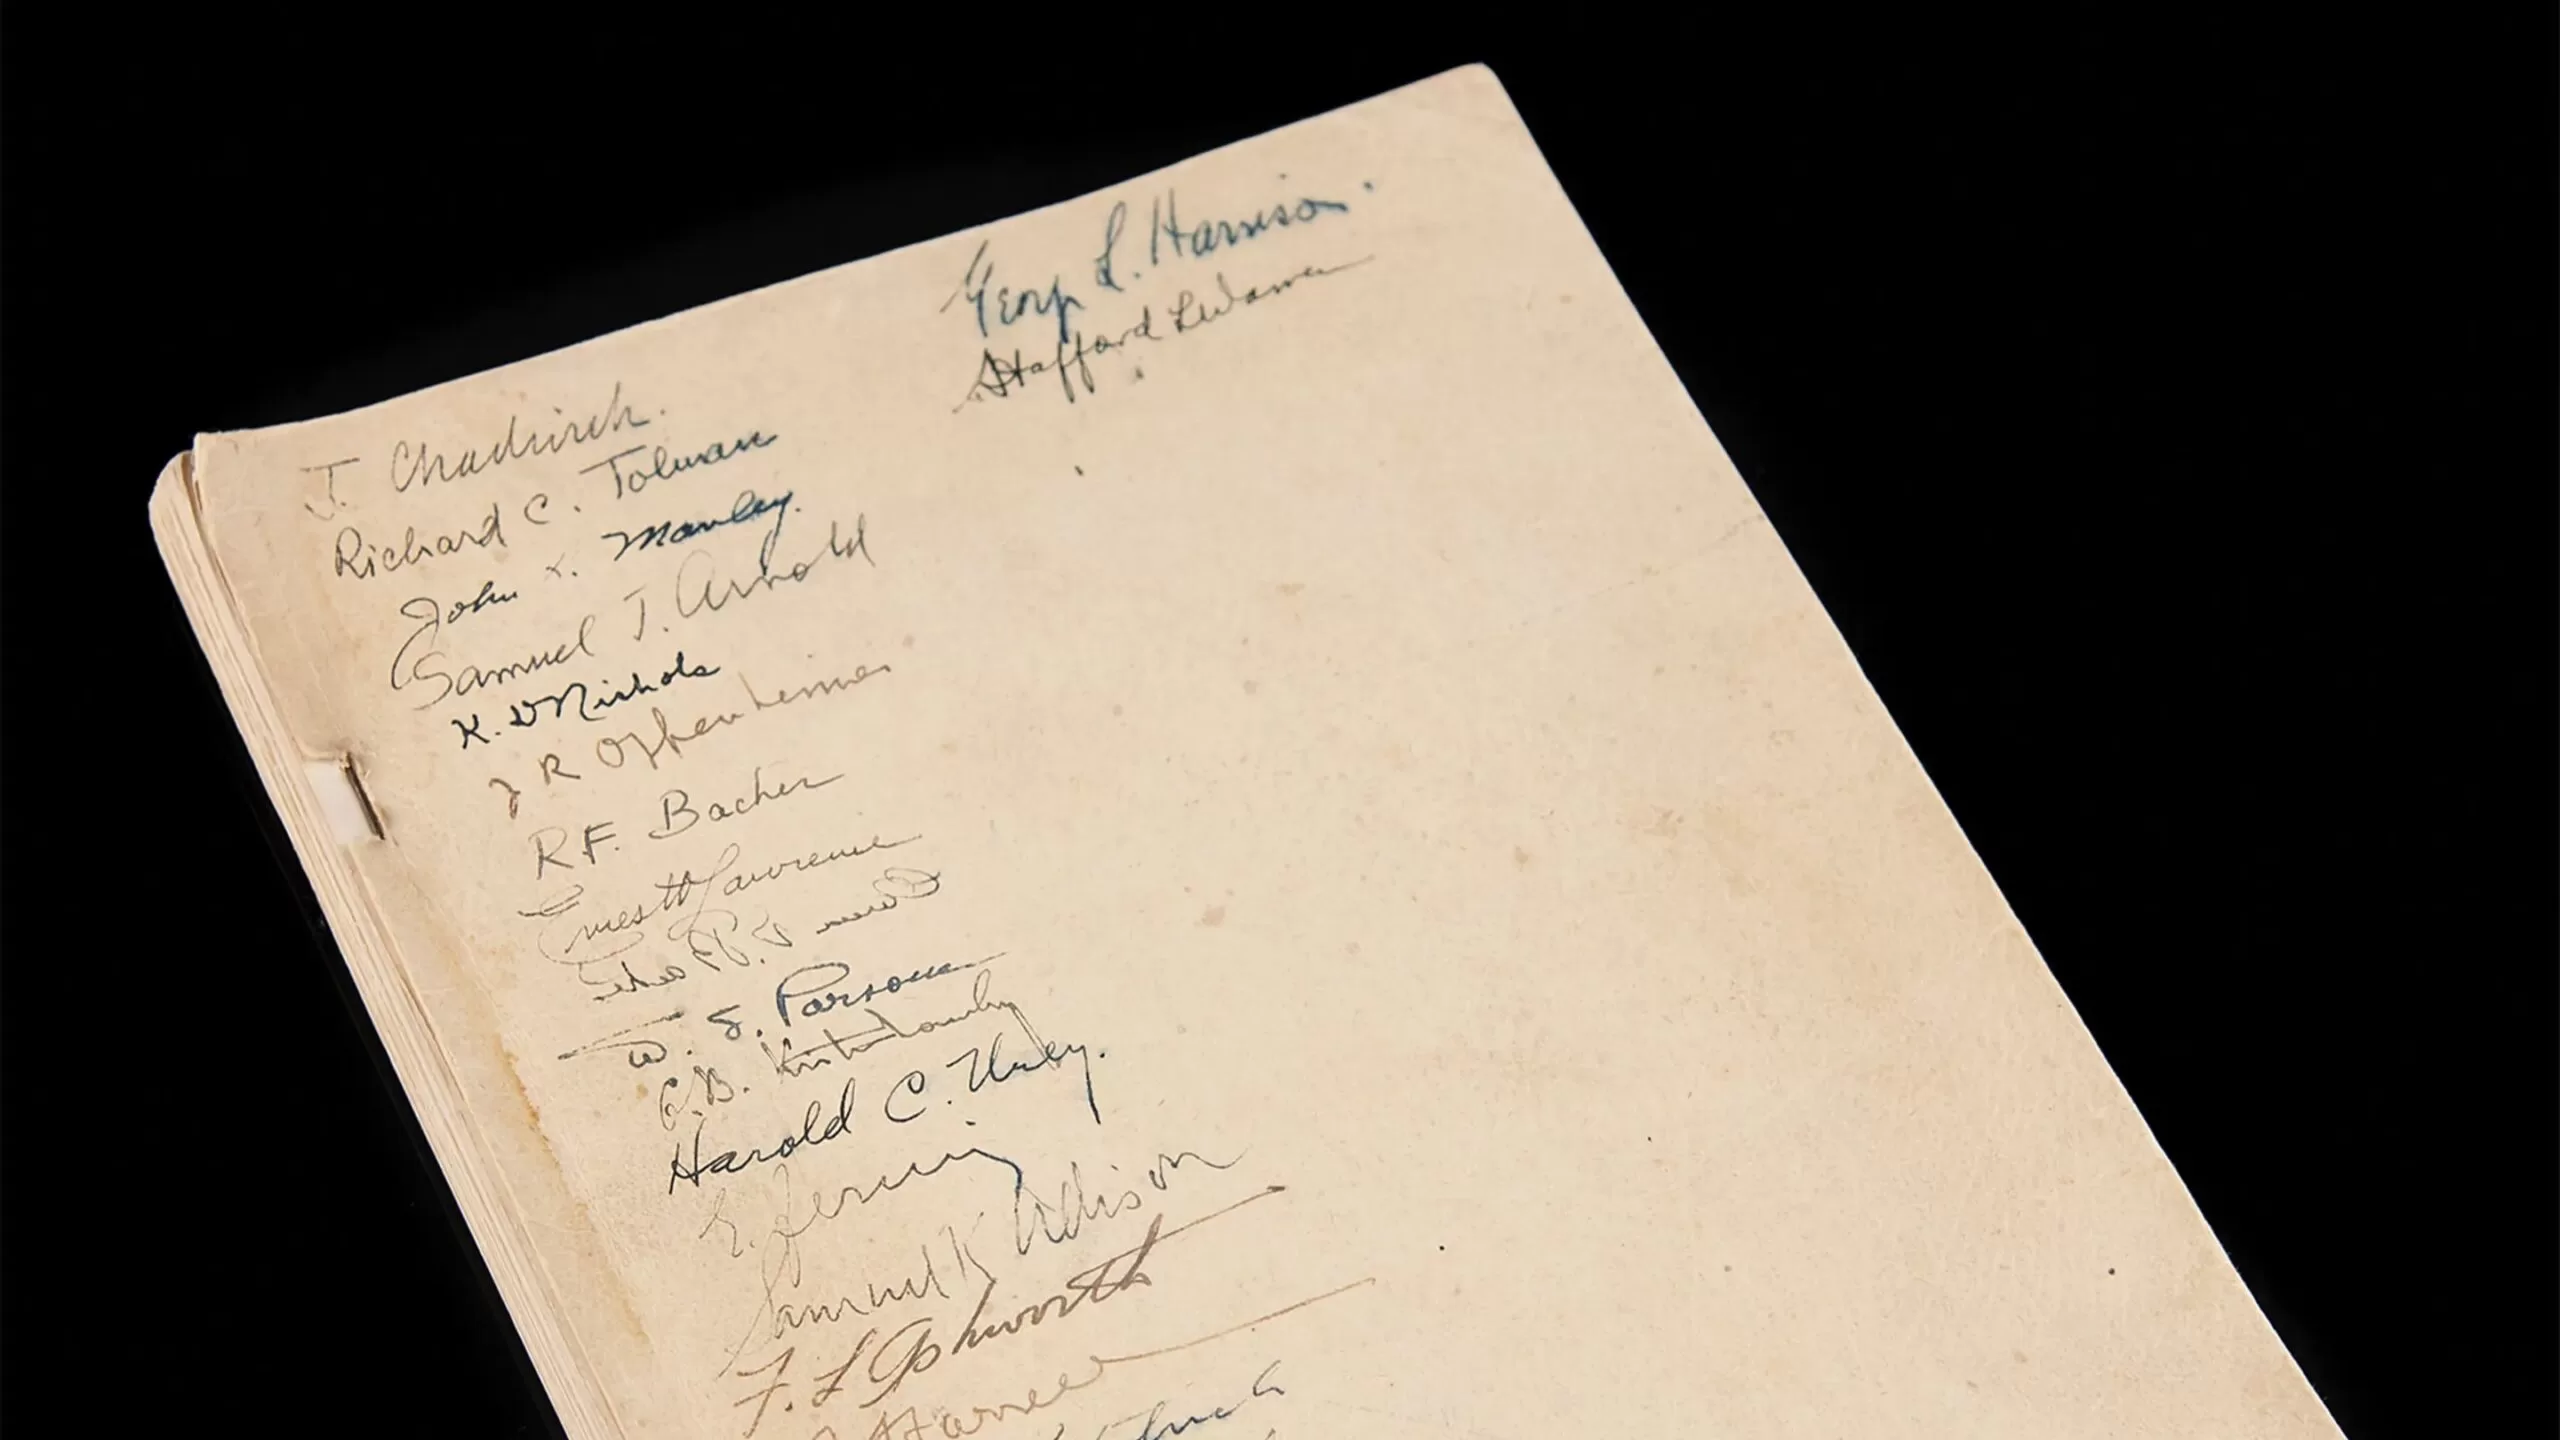 George L. Harrison
Stafford L Warren
J. Chadwick.
Richard C. Tolman
John H. Manley.
Samuel T. Arnold
K. D Nichols
J R Oppenheimer
R.F. Bacher
Ernest O Lawrence
W. S. Parsons
G.B. Kistiakowsky
Harold C. Urey.
E. Fermi
Samuel K Allison
F. L Ashworth